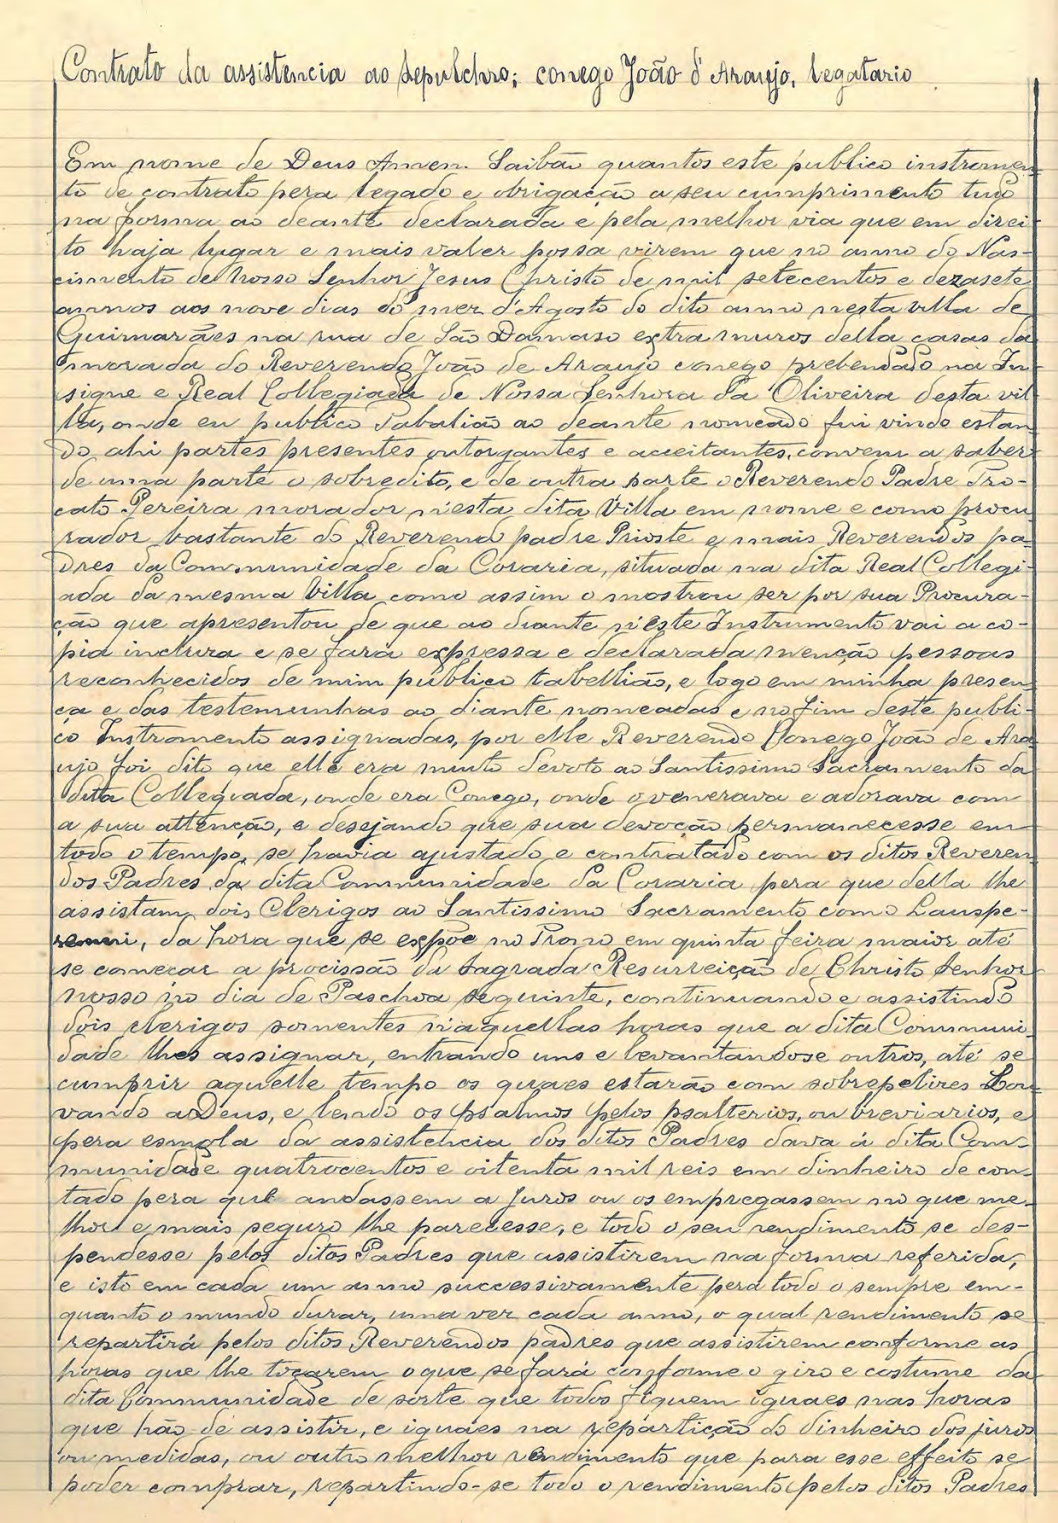 Contrato da assistencia ao Sepulchro; conego João d'Araujo, legatario
Em nome de Deus Amen. Saibão quantos este publico instromen
to de contrato pera legado e obrigação a seu cumprimento tudo
na forma ao deante declarada e pela melhor via que em direi
to haja lugar e mais valer possa virem que no anno do Nas-
cimento de Nosso Senhor Jesus Christo de mil setecentos e dezasete
annos aos nove dias do mez d'Agosto do dito anno nesta villa de
Guimarães na rua de São Damaso extra muros della casas da
morada do Reverendo João de Araujo conego prebendado na In
signe e Real Collegiada de Nossa Senhora da Oliveira desta vil
la, onde eu publico Tabalião ao deante nomeado fui vindo estan
do ahi partes presentes outorgantes e acceitantes, convem a saber
de uma parte o sobredito, e de outra parte o Reverendo Padre Tro-
cato Pereira morador n'esta dita Villa em nome e como procu
rador bastante do Reverendo padre Prioste e mais Reverendos pa
dres da Communidade da Coraria, situada na dita Real Collegi
ada da mesma Villa como assim o mostrou ser por sua Procura-
ção que apresentou de que ao diante n'este Instrumento vai a co-
pia incluza e se fará expressa e declarada menção pessoas
reconhecidos de mim publico tabellião, e logo em minha presen
ça e das testemunhas ao diante nomeadas e no fim deste publi-
co Instromento assignadas, por elle Reverendo Conego João de Ara
ujo foi dito que elle era muito devoto ao Santissimo Sacramento da
dita Collegiada, onde era Conego, onde o venerava e adorava com
a sua attenção, e desejando que sua devoção permanecesse em
todo o tempo, se havia ajustado e contratado com os ditos Reveren
dos Padres da dita Communidade da Coraria pera que della lhe
assistam dois Clerigos ao Santissimo Sacramento como Lauspe-
renni, da hora que se expõe no Trono em quinta feira maior até
se começar a procissão da Sagrada Resurreição de Christo Senhor
nosso no dia de Paschoa seguinte, continuando e assistindo
dois clerigos somentes n'aquellas horas que a dita Communi
dade lhes assignar, entrando uns e levantandose outros, até se
cumprir aquelle tempo os quaes estarão com sobrepelizes Lou
vando a Deus, e lendo os psalmos pelos psalterios, ou breviarios, e
pera esmola da assistencia dos ditos Padres dava á dita Com-
munidade quatrocentos e oitenta mil reis em dinheiro de con-
tado pera que andassem a juros ou os empregassem no que me-
lhor e mais seguro lhe parecesse, e todo o seu rendimento se des-
pendesse pelos ditos Padres que assistirem na forma referida,
e isto em cada um anno successivamente pera todo o sempre em-
quanto o mundo durar, uma vez cada anno, o qual rendimento se
repartirá pelos ditos Reverendos padres que assistirem conforme as
horas que lhe tocarem o que se fará conforme o giro e costume da
dita Communidade de sorte que todos fiquem iguaes nas horas
que hão de assistir, e iguaes na repartição do dinheiro dos juros
ou medidas, ou outro melhor rendimento que para esse effeito se
poder comprar, repartindo-se todo o rendimento pelos ditos Padres